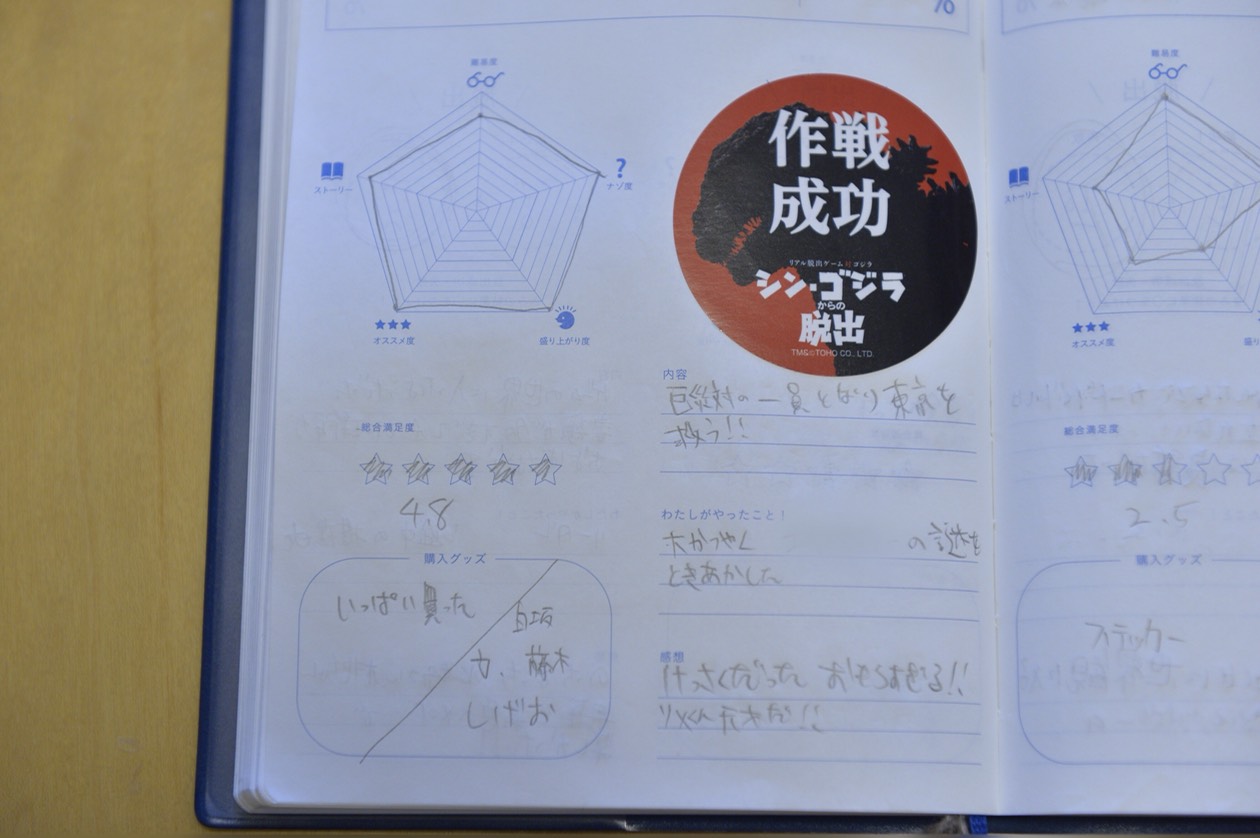 %
難易度
ストーリー
?
ナゾ度
オススメ度
盛り上がり度
作戦
成功
リアル脱出ゲーム対ゴジラ
シン・ゴジラ
からの
脱出
TM&©TOHO CO., LTD.
総合満足度
4.8
購入グッズ
いっぱい買った
白坂
藤木
しげお
内容
巨災対の一員となり東京を
救う!!
わたしがやったこと!
大かつやく の謎を
ときあかした
感想
けっさくだった おもしろすぎる!!
天才だ!!
難易度
ストーリー
オススメ度
総合満足度
2.5
購入グッズ
ステッカー